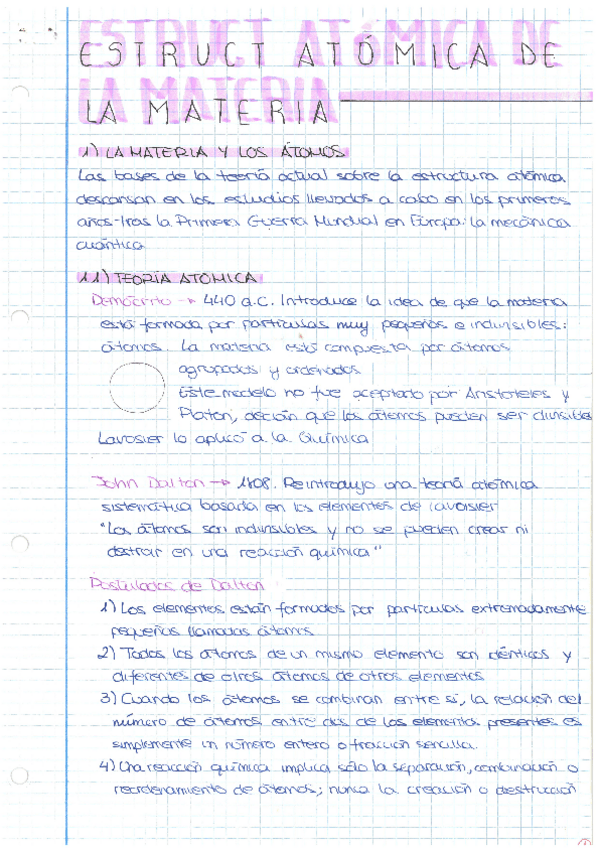 ESTRUCT ATÓMICA DE
LA MATERIA
1) LA MATERIA Y LOS ÁTOMOS
Las bases de la teoría actual sobre la estructura atómica
descansan en los estudios llevados a cabo en los primeros
años tras la Primera Guerra Mundial en Europa: la mecánica
cuántica
1.1) TEORÍA ATOMICA
Demócrito → 440 a.C. Introduce la idea de que la materia
está formada por partículas muy pequeñas e indivisibles:
átomos. La materia está compuesta por átomos
agrupados y ordenados
Este modelo no fue aceptado por Aristóteles y
Platón, decían que los átomos pueden ser divisibles
Lavosier lo aplicó a la Química
John Dalton → 1808. Reintrodujo una teoría atómica
sistemática basada en los elementos de lavoisier
"Los átomos son indivisibles y no se pueden crear ni
destruir en una reacción química"
Postulados de Dalton
1) Los elementos están formados por partículas extremadamente
pequeñas llamadas átomos
2) Todos los átomos de un mismo elemento son idénticos y
diferentes de otros átomos de otros elementos
3) Cuando los átomos se combinan entre sí, la relación del
número de átomos entre dos de los elementos presentes es
simplemente un número entero o fracción sencilla.
4) Una reacción química implica sólo la separación, combinación o
reordenamiento de átomos; nunca la creación o destrucción